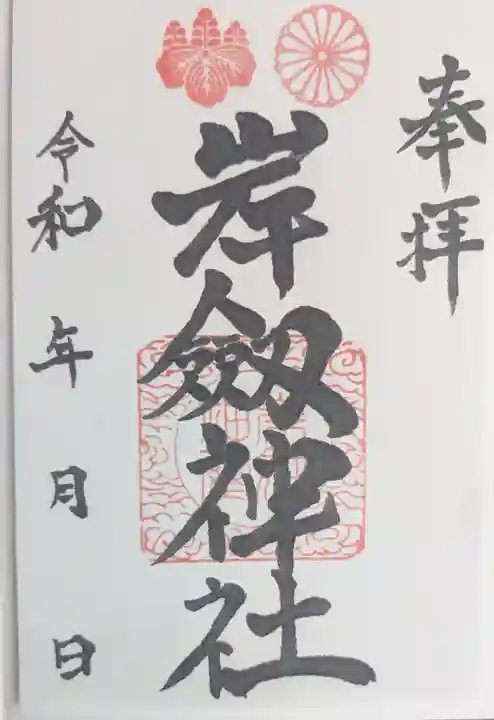 奉拝
岸剱神社
令和 年 月 日